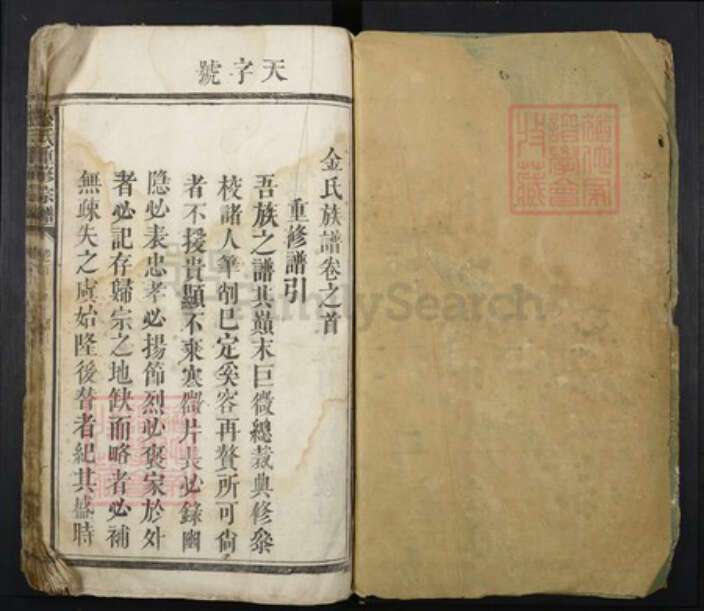 天字號
金氏族譜卷之首
重修譜引
吾族之譜其巔末巨微總裁典修叅
校諸人筆削已定奚容再贅所可尙
者不援貴顯不棄寒微片長必錄幽
隐必表忠孝必揚節烈必褒家於外
者必記存歸宗之地缺而略者必補
無疎失之虞始隆後替者紀其盛時
FamilySearch